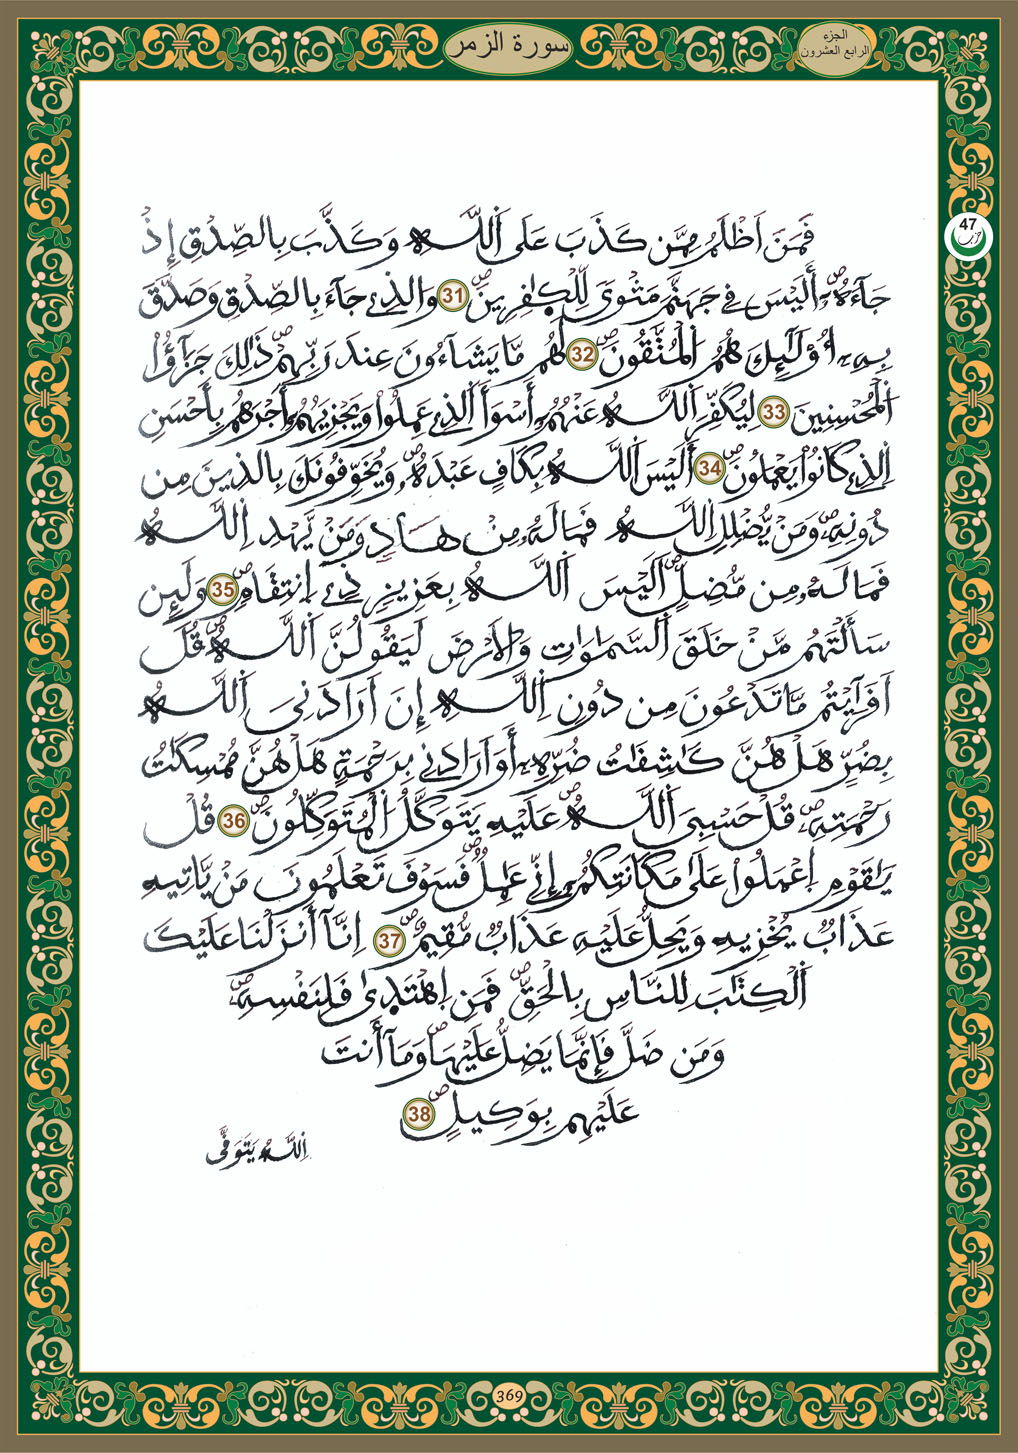 سورة الزمر
الجزء
الرابع العشرون
47
حزب
فَمَنَ اَظْلَمُ مِمَّن كَذَبَ عَلَى اَللَّهِ وَكَذَّبَ بِالصِّدْقِ إِذْ
جَآءَهُۥٓۖ أَلَيْسَ فِے جَهَنَّمَ مَثْوىَ لِّلْكٰ۪فِرِينَۖ 31 وَالذِے جَآءَ بِالصِّدْقِ وَصَدَّقَ
بِهِۦٓ أُوْلَٰٓئِكَ هُمُ اُلْمُتَّقُونَۖ 32 لَهُم مَّا يَشَآءُونَ عِندَ رَبِّهِمْۖ ذَٰلِكَ جَزَآؤُاْ
اُلْمُحْسِنِينَ 33 لِيُكَفِّرَ اَللَّهُ عَنْهُمُۥٓ أَسْوَأَ اَلذِے عَمِلُواْ وَيَجْزِيَهُمُۥٓ أَجْرَهُم بِأَحْسَنِ
اِلذِے كَانُواْ يَعْمَلُونَۖ 34 أَلَيْسَ اَللَّهُ بِكَافٍ عَبْدَهُۥۖ وَيُخَوِّفُونَكَ بِالذِينَ مِن
دُونِهِۦۖ وَمَنْ يُّضْلِلِ اِللَّهُ فَمَا لَهُۥ مِنْ هَادٍۖ وَمَنْ يَّهْدِ اِللَّهُ
فَمَا لَهُۥ مِن مُّضِلٍّۖ اَلَيْسَ اَللَّهُ بِعَزِيزٍ ذِے اِنتِقَامٍۖ 35 وَلَئِن
سَأَلْتَهُم مَّنْ خَلَقَ اَلسَّمَٰوَٰتِ وَالَارْضَ لَيَقُولُنَّ اَللَّهُۖ قُلَ
اَفَرَآيْتُم مَّا تَدْعُونَ مِن دُونِ اِللَّهِ إِنَ اَرَادَنِىَ اَللَّهُ
بِضُرٍّ هَلْ هُنَّ كَٰشِفَٰتُ ضُرِّهِۦٓ أَوَ اَرَادَنِے بِرَحْمَةٍ هَلْ هُنَّ مُمْسِكَٰتُ
رَحْمَتِهِۦۖ قُلْ حَسْبِىَ اَللَّهُۖ عَلَيْهِ يَتَوَكَّلُ اُلْمُتَوَكِّلُونَۖ 36 قُلْ
يَٰقَوْمِ اِعْمَلُواْ عَلَىٰ مَكَانَتِكُمُۥٓ إِنِّے عَٰمِلٌۖ فَسَوْفَ تَعْلَمُونَ مَنْ يَّاتِيهِ
عَذَابٌ يُخْزِيهِ وَيَحِلُّ عَلَيْهِ عَذَابٌ مُّقِيمٌۖ 37 اِنَّآ أَنزَلْنَا عَلَيْكَ
اَلْكِتَٰبَ لِلنَّاسِ بِالْحَقِّۖ فَمَنِ اِهْتَدىٰ فَلِنَفْسِهِۦۖ
وَمَن ضَلَّ فَإِنَّمَا يَضِلُّ عَلَيْهَاۖ وَمَآ أَنتَ
عَلَيْهِم بِوَكِيلٍۖ 38
اِللَّهُ يَتَوَفَّى
369